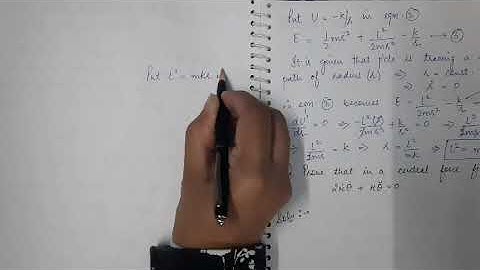 Put L² = mkr
Put U = -k/r in eqn. ⑤
E = 1/2 mṙ² + L²/2mr² - k/r → ⑤
It is given that p'cle is tracing a
path of radius (r) ⇒ r = const.
⇒ ṙ = 0
eqn ⑤ becomes E = L²/2mr² -
= 0 ⇒ -L²(2)/2mr³ + k/r² = 0 ⇒
⇒ L²/mr = k ⇒ r = L²/mk ⇒ L² = m
Prove that in a central force f
2ṙθ̇ + rθ̈ = 0
Soln :-